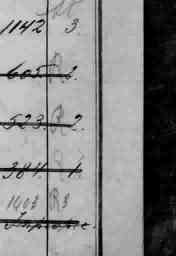 1142 3.
605 R 2.
523 R 2.
384 1.
1403 R3